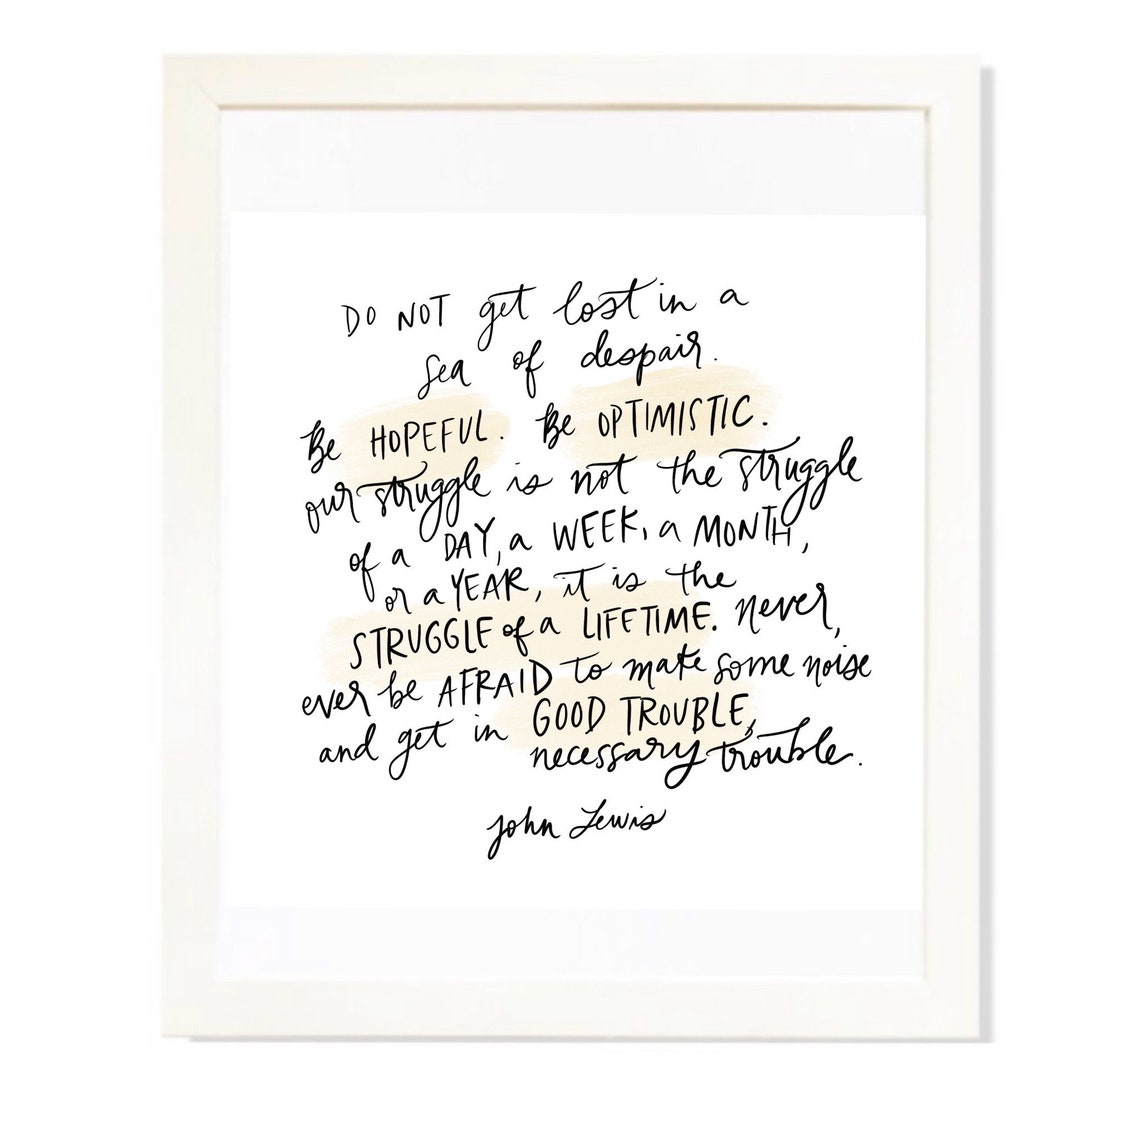 DO NOT get lost in a
sea of despair.
Be HOPEFUL. Be OPTIMISTIC.
our struggle is not the struggle
of a DAY, a WEEK, a MONTH,
or a YEAR, it is the
STRUGGLE of a LIFETIME. Never,
ever be AFRAID to make some noise
and get in GOOD TROUBLE,
necessary trouble.
John Lewis